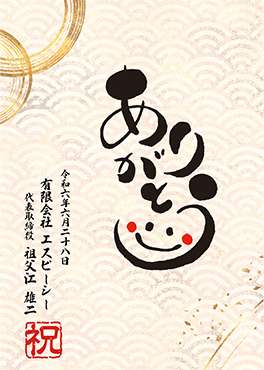 ありがとう
令和六年六月二十八日
有限会社 エスピーシー
代表取締役 祖父江 雄二
祝